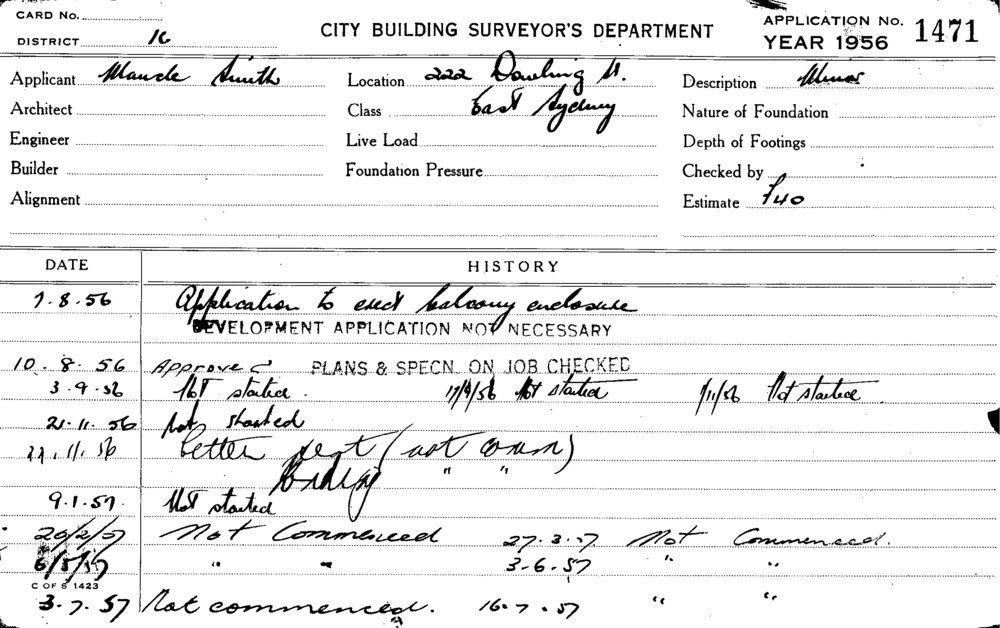 CARD No.
DISTRICT 16
CITY BUILDING SURVEYOR'S DEPARTMENT
APPLICATION No. 1471
YEAR 1956
Applicant Maude Smith
Location 222 Dowling St.
Description Minor
Architect
Class East Sydney
Nature of Foundation
Engineer
Live Load
Depth of Footings
Builder
Foundation Pressure
Checked by
Alignment
Estimate £40
DATE HISTORY
7.8.56 Application to erect balcony enclosure
DEVELOPMENT APPLICATION NOT NECESSARY
10.8.56 Approved PLANS & SPECN. ON JOB CHECKED
3.9.56 Not started. 17/9/56 Not started /11/56 Not started
21.11.56 Not started
22.11.56 Letter sent (not comm)
" "
9.1.57. Not started
20/2/57 Not Commenced 27.3.57 Not Commenced.
6/5/57 " " 3-6.57 " "
C OF S 1423
3.7.57 Not commenced. 16.7.57 " "